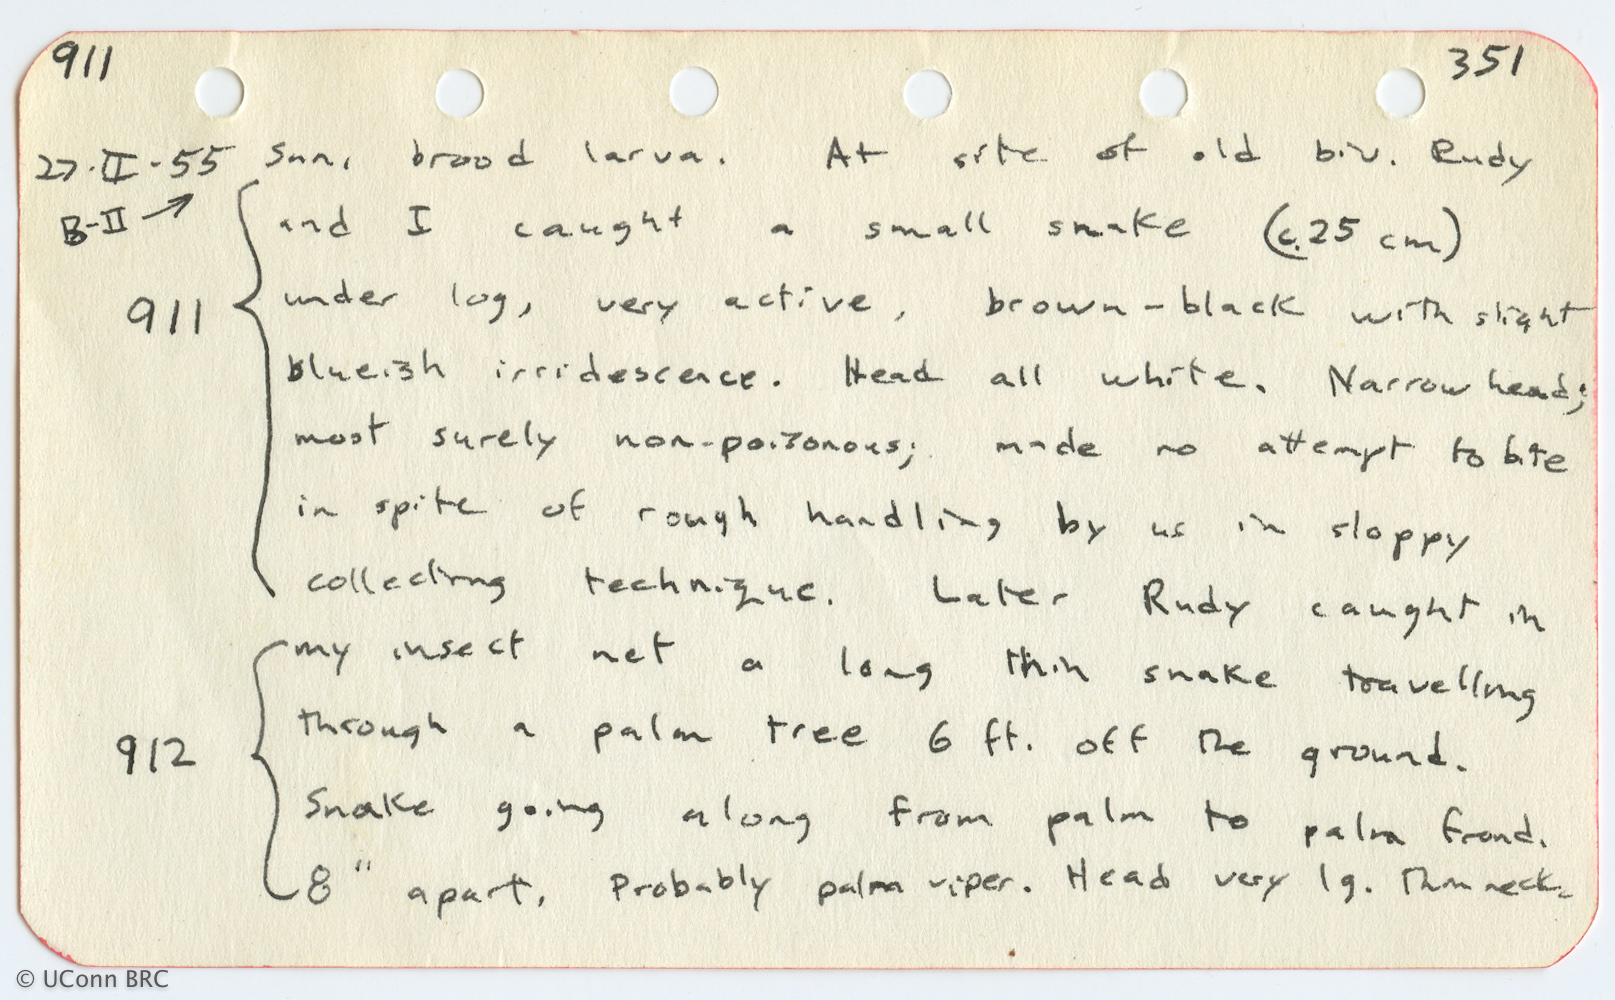 911 351
27·II·55 Sun, brood larva. At site of old biv. Rudy
B-II → and I caught a small snake (c.25 cm)
911 under log, very active, brown-black with slight
blueish irridescence. Head all white. Narrow head;
most surely non-poisonous; made no attempt to bite
in spite of rough handling by us in sloppy
collecting technique. Later Rudy caught in
my insect net a long thin snake travelling
912 through a palm tree 6 ft. off the ground.
Snake going along from palm to palm frond.
8" apart, Probably palm viper. Head very lg. Thin neck.
© UConn BRC